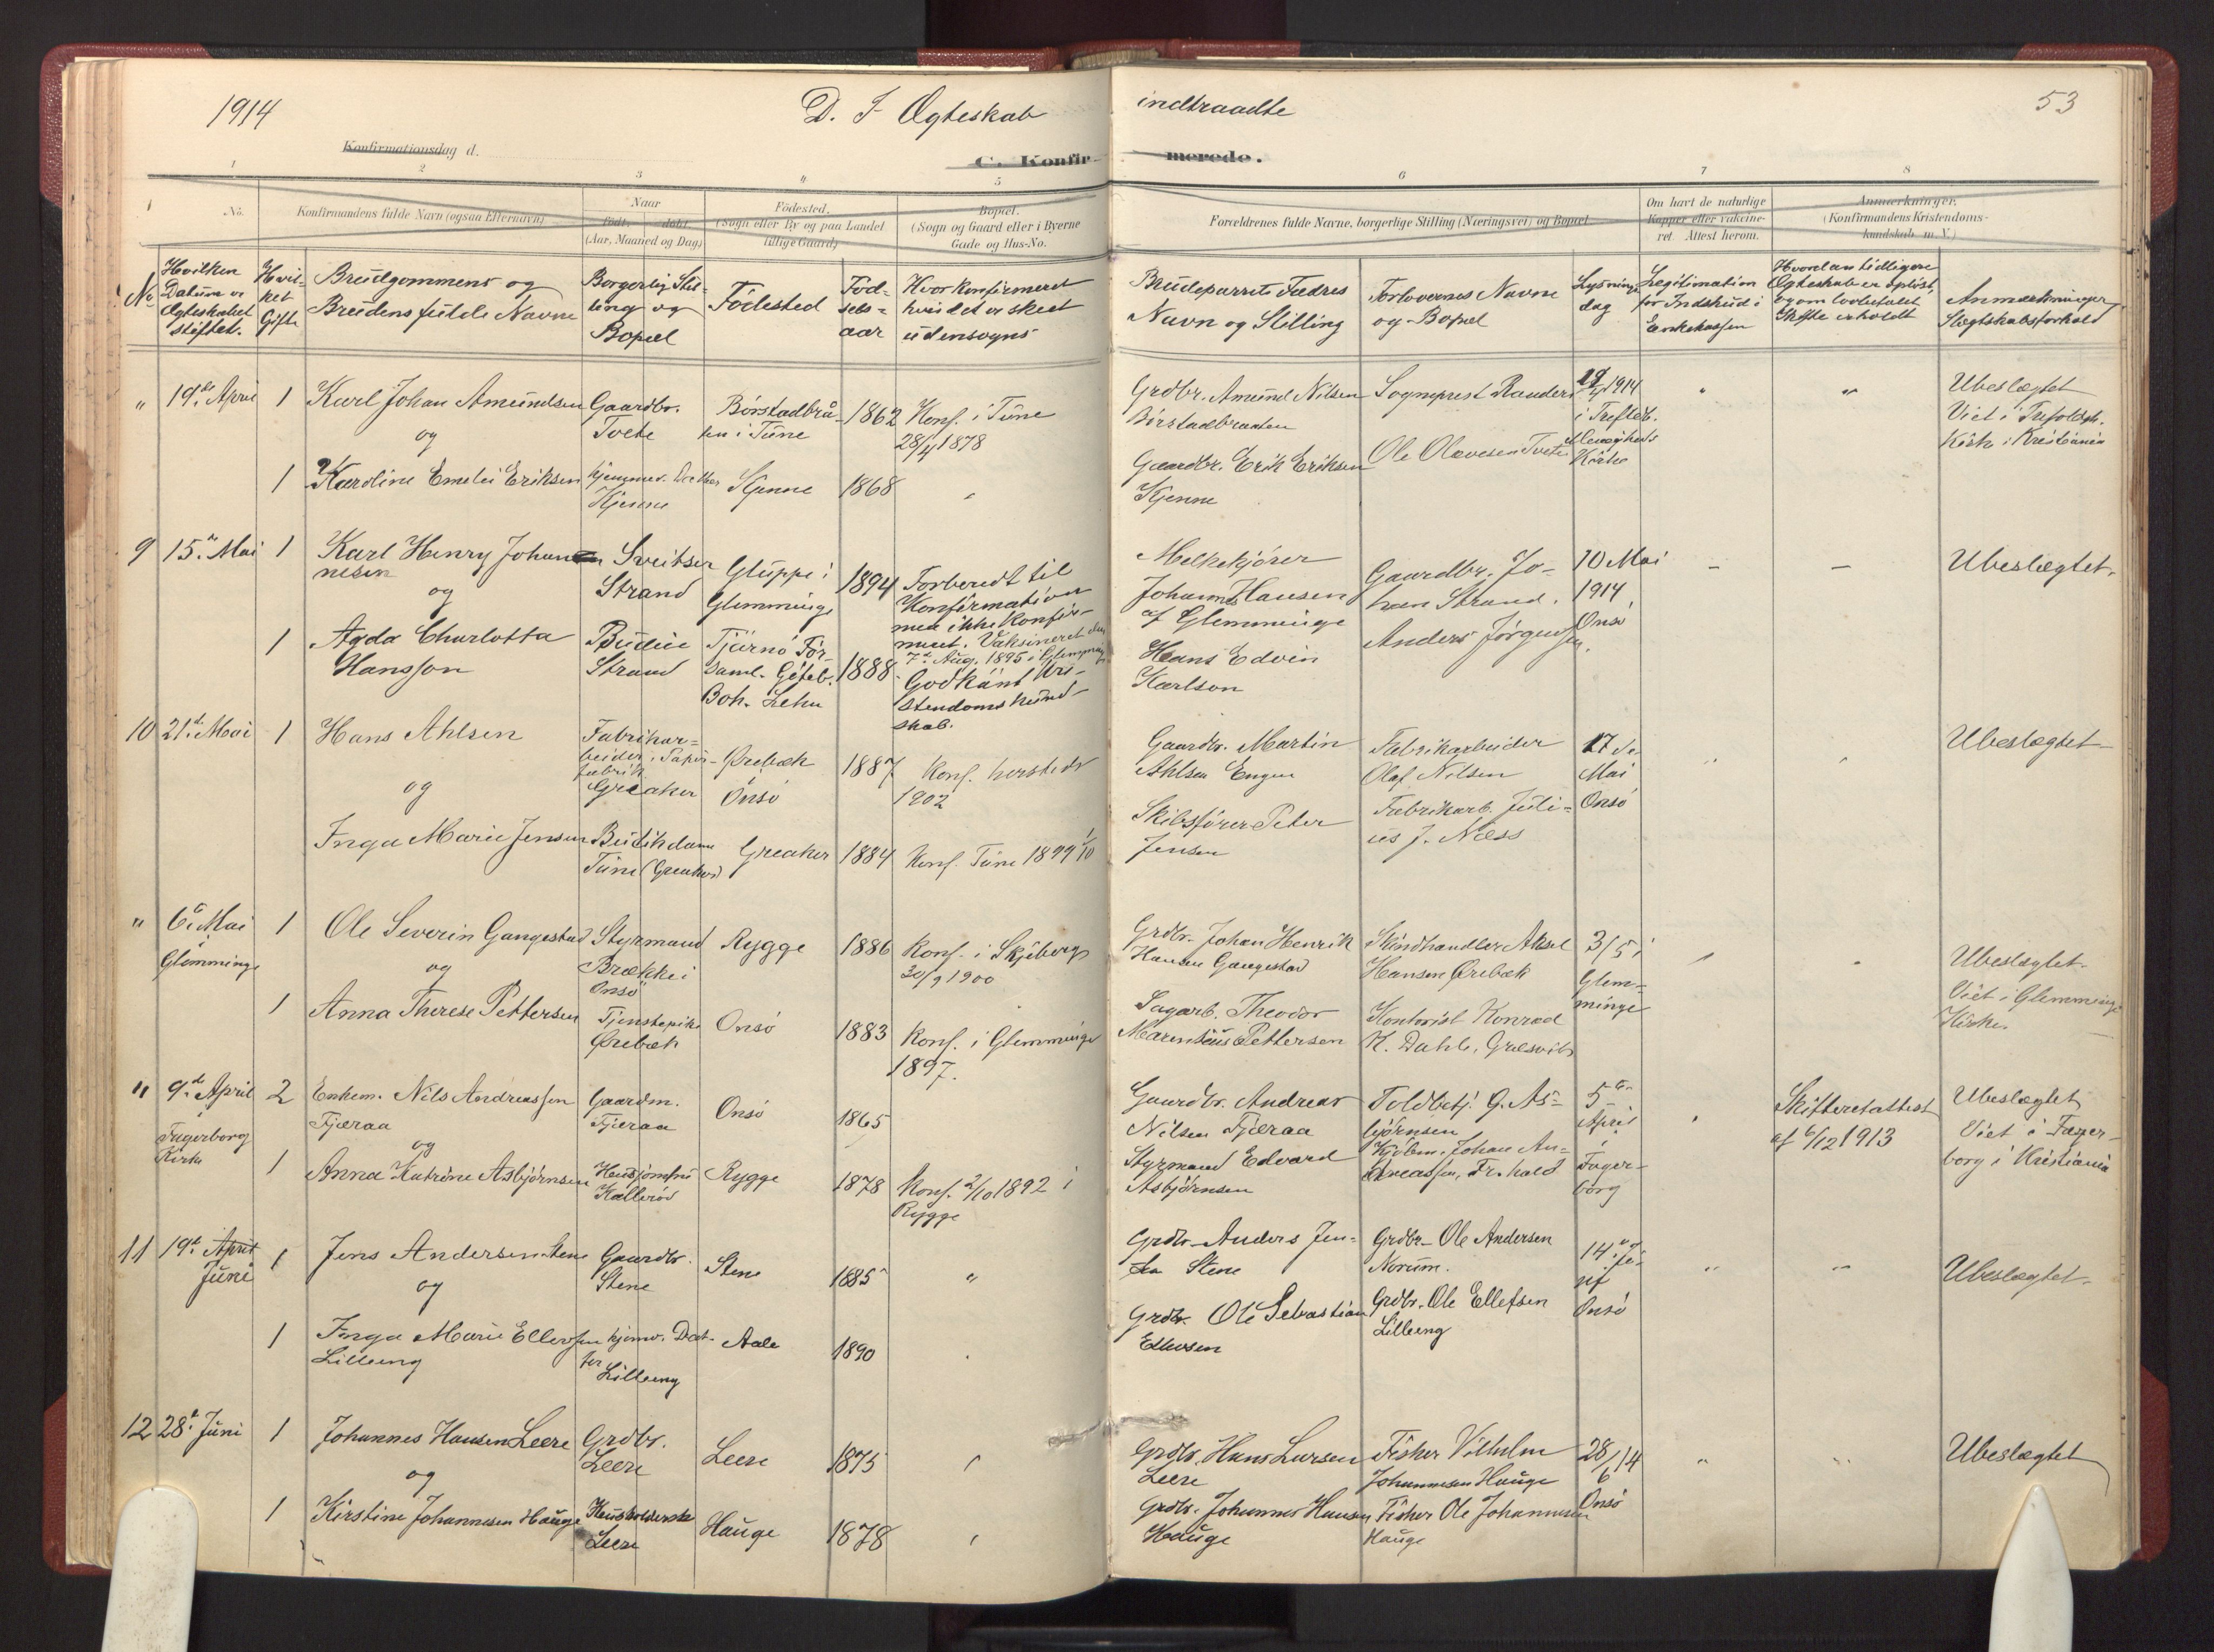 1914
D. I Ægteskab indtraadte
53
Konfirmationsdag d.
C. Konfirmerede.
1 2 3 4 5 6 7 8
No.
Konfirmandens fulde Navn (ogsaa Efternavn)
Naar
født, døbt.
(Aar, Maaned og Dag)
Fødested.
(Sogn eller By og paa Landet
tillige Gaard)
Bopæl.
(Sogn og Gaard eller i Byerne
Gade og Hus-No.
Forældrenes fulde Navne, borgerlige Stilling (Næringsvei) og Bopæl
Om havt de naturlige
Kopper eller vakcine-
ret. Attest herom.
Anmærkninger.
(Konfirmandens Kristendoms-
kundskab m. V.)
No
Hvilken
Datum er
Ægteskabet
stiftet.
Hvil-
ket
Gifte
Brudgommens og
Brudens fulde Navne
Borgerlig Stil-
ling og
Bopæl
Födested
Föd-
sels-
aar
Hvor konfirmeret
hvis det er skeet
udensogns
Brudeparrets Fædres
Navn og Stilling
Forlovernes Navne
og Bopæl
Lysnings
dag
Legitimation
for Indskud i
Enkekassen
Hvordan tidligere
Ægteskab er opløst,
og om lovbefalet
Skifte er holdt
Anmærkninger
Slegtskabsforhold
" 19de April 1 Karl Johan Amundsen Gaardbr.
Tvete
Börstadbrå-
ten i Tune
1862 Konf. i Tune
28/4 1878
Grdbr. Amund Nilsen
Börstadbraaten
Sogneprest Randers
1914
i Trefoldb.
Kirke
" "
Ubeslægtet
Viet i Trefoldgh.
Kirke i Kristiania
og
1 Karoline Emelie Eriksen hjemmev. Datter
Kjenne
Kjenne 1868 "
Gaardbr. Erik Eriksen
Kjenne
Ole Olavesen Tvete
9 15de Mai 1 Karl Henry Johan
nesen
Sveitser
Strand
Gluppe i
Glemminge
1894 Forberedt til
Konfirmation
men ikke konfir-
meret. Vaksineret den
7de Aug. 1895 i Glemminge
Melkekjörer
Johannes Hansen
af Glemminge
Gaardbr. Jo-
han Strand.
10 Mai
1914
Onsö
- -
Ubeslægtet.
og
1 Agda Charlotta
Hansson
Budeie
Strand
Tjärnö För-
saml. Göteb.
Boh. Lehn
1888. Godkänt Kri-
stendomskund-
skab.
Hans Edvin
Karlson
Anders Jörgensen.
10 21de Mai 1 Hans Ahlsen
Fabrikar-
beider, Papir-
fabrik
Greaker
Örebæk
Önsö
1887 Konf. hersteds
1902
Gaardbr. Martin
Ahlsen Engen
Fabrikarbeider
Olaf Nilsen
17de
Mai
Onsö
" "
Ubeslægtet
og
Inga Marie Jensen Butikdame
Tune (Greaker)
Greaker 1884 Konf. Tune 1899 1/10
Skibsförer Peter
Jensen
Fabrikarb. Juli-
us J. Næss
" 6te Mai
i
Glemminge
1 Ole Severin Gangestad Styrmand
Brække i
Onsö
Rygge 1886 Konf. i Skjeberg
30/9 1900
Grdbr. Johan Henrik
Hansen Gangestad
Skindhandler Aksel
Hansen Örebæk
3/5 i
Glem-
minge
" "
Ubeslægtet.
Viet i Glemminge
Kirke.
og
1 Anna Therese Pettersen Tjenstepike
Örebæk
Onsö 1883 Konf. i Glemminge
1897.
Sagarb. Theodor
Marensius Pettersen
Kontorist Konrad
K. Dahle, Græsvik
" 9de April
i
Fagerborg
Kirke
2 Enkem. Nils Andreassen
Fjeraa
Gaardm.
Fjeraa
Onsö 1865
Gaardbr. Andreas
Nilsen Fjeraa
Toldbetj. G. As-
björnsen
5te
April
i
Fager-
borg
"
Skifteretattest
af 6/12 1913
Ubeslægtet
Viet i Fager-
borg i Kristiania
og
1 Anna Katrine Asbjörnsen Husjomfru
Kallerød
Rygge 1878 Konf. 2/10 1892 i
Rygge
Styrmand Edvard
Asbjörnsen
Kjöbm. Johan An-
dreassen, Fr.hald
11 19de April
Juni
1 Jens Andersen Stene Gaardbr.
Stene
Stene 1885 "
Grdbr. Anders Jen-
sen Stene
Grdbr. Ole Andersen
Norum.
14de Ju-
ni
Onsö
" "
Ubeslægtet.
og
1 Inga Marie Ellefsen
Lilleeng
hjemv. Dat-
ter
Lilleeng
Aale 1890 "
Grdbr. Ole Sebastian
Ellefsen
Grdbr. Ole Ellefsen
Lilleeng
12 28de Juni 1 Johannes Hansen Leere Grdbr.
Leere
Leere 1875 "
Grdbr. Hans Larsen
Leere
Fisker Vilhelm
Johannesen Hauge
28/6 14
Onsö
" "
Ubeslægtet
og
1 Kirstine Johannesen Hauge Husholderske
Leere
Hauge 1878 "
Grdbr. Johannes Hansen
Hauge
Fisker Ole Johannesen
Hauge